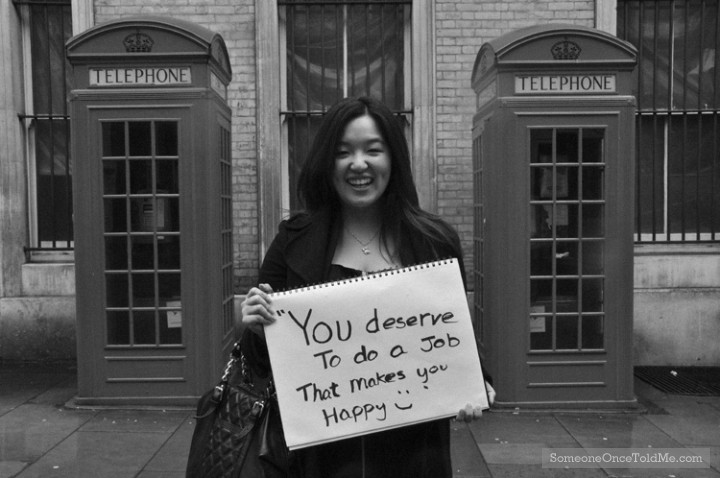 TELEPHONE
TELEPHONE
"You deserve
To do a Job
That makes you
Happy :) '
SomeoneOnceToldMe.com